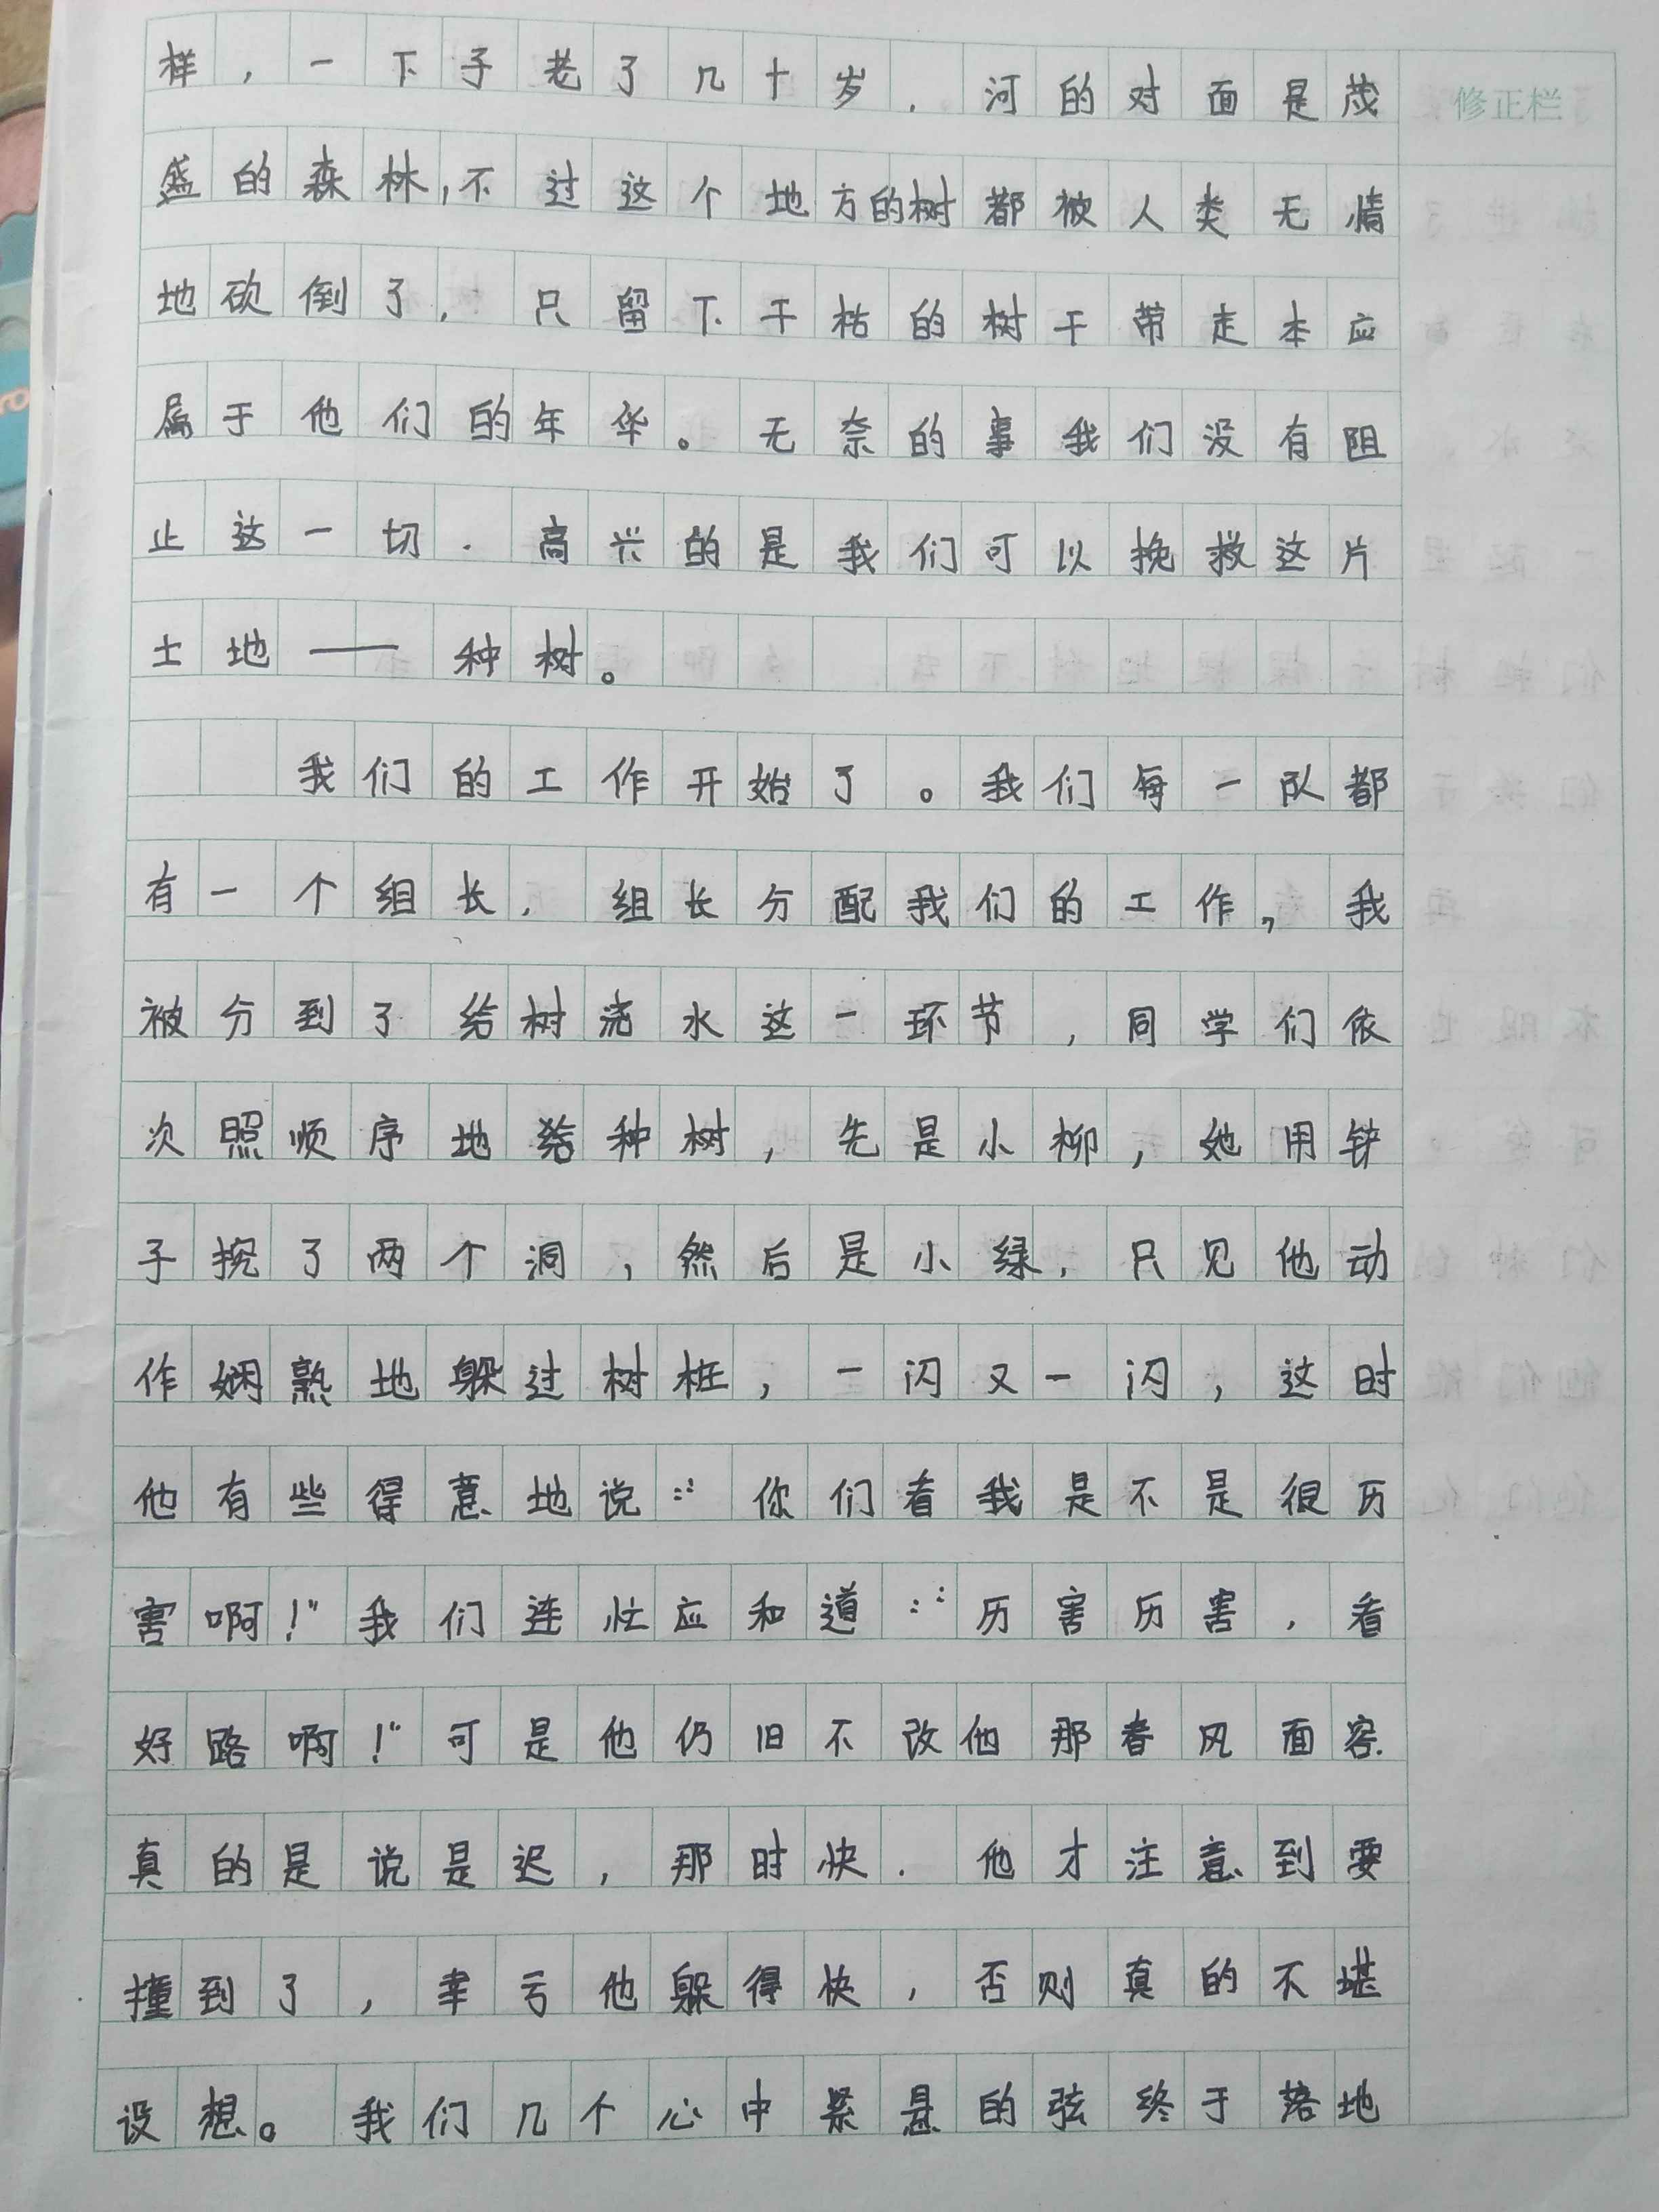 样，一下子老了几十岁．河的对面是茂
修正栏
盛的森林，不过这个地方的树都被人类无情
地砍倒了，只留下干枯的树干带走本应
属于他们的年华。无奈的事我们没有阻
止这一切．高兴的是我们可以挽救这片
土地——种树。
我们的工作开始了。我们每一队都
有一个组长，组长分配我们的工作，我
被分到了给树浇水这一环节，同学们依
次照顺序地给种树，先是小柳，她用铲
子挖了两个洞，然后是小绿，只见他动
作娴熟地躲过树桩，一闪又一闪，这时
他有些得意地说：“你们看我是不是很历
害啊！”我们连忙应和道：“历害历害，看
好路啊！”可是他仍旧不改他那春风面容．
真的是说是迟，那时快．他才注意到要
撞到了，幸亏他躲得快，否则真的不堪
设想。我们几个心中紧悬的弦终于落地